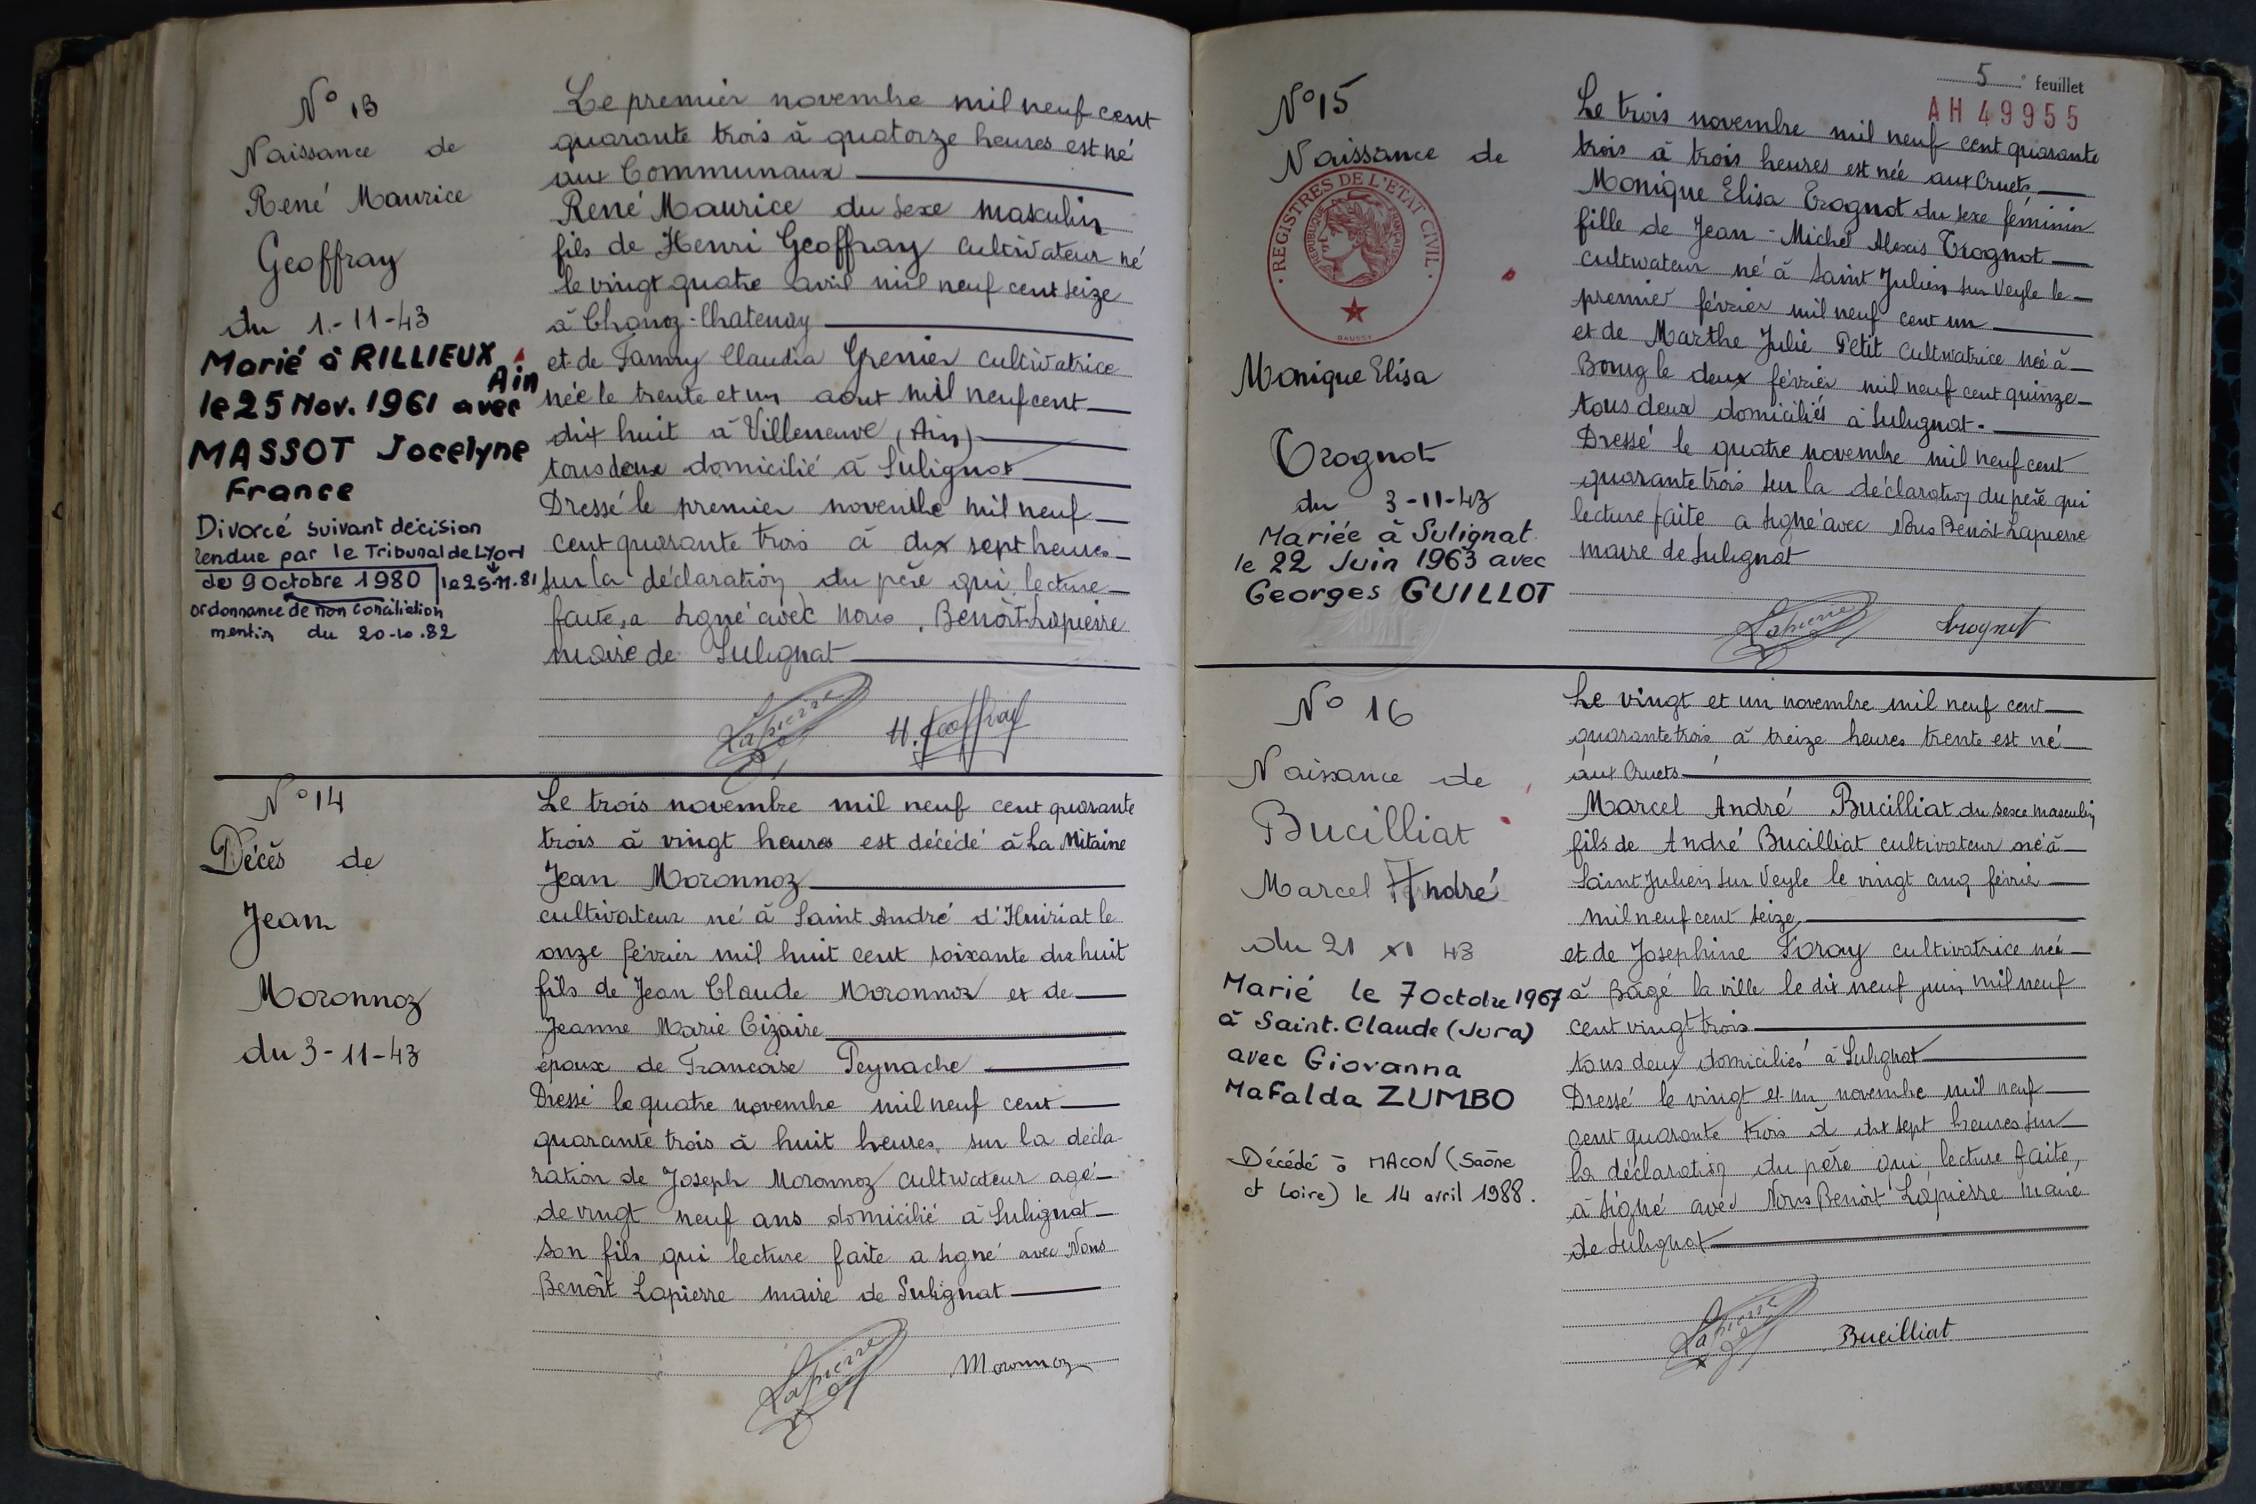 N° 13
Naissance de
René Maurice
Geoffray
du 1-11-43
Marié à RILLIEUX
Ain
le 25 Nov. 1961 avec
MASSOT Jocelyne
France
Divorcé suivant décision
rendue par le Tribunal de Lyon
du 9 octobre 1980 le 25-11-81
ordonnance de non conciliation
mention du 20-10-82
Le premier novembre mil neuf cent
quarante trois à quatorze heures est né
aux Communaux
René Maurice du sexe masculin
fils de Henri Geoffray cultivateur né
le vingt quatre avril mil neuf cent seize
à Chanoz-Chatenay
et de Fanny Claudia Grenier cultivatrice
née le trente et un aout mil neuf cent
dix huit à Villeneuve (Ain)
tous deux domicilié à Sulignat
Dressé le premier novembre mil neuf
cent quarante trois à dix sept heures
sur la déclaration du père qui, lecture
faite, a signé avec nous, Benoît Lapierre
maire de Sulignat
Lapierre H. Geoffray
N° 14
Décès de
Jean
Moronnoz
du 3-11-43
Le trois novembre mil neuf cent quarante
trois à vingt heures est décédé à La Mitaine
Jean Moronnoz
cultivateur né à Saint André d'Huiriat le
onze février mil huit cent soixante dix huit
fils de Jean Claude Moronnoz et de
Jeanne Marie Cizaire
époux de Francoise Peynache
Dressé le quatre novembre mil neuf cent
quarante trois à huit heures, sur la décla-
ration de Joseph Moronnoz cultivateur agé
de vingt neuf ans domicilié à Sulignat
son fils qui lecture faite a signé avec Nous
Benoît Lapierre maire de Sulignat
Lapierre Moronnoz
5 e feuillet
AH 49955
N° 15
Naissance de
REGISTRES DE L'ETAT CIVIL
REPUBLIQUE FRANÇAISE
Monique Elisa
Trognot
du 3-11-43
Mariée à Sulignat
le 22 Juin 1963 avec
Georges GUILLOT
Le trois novembre mil neuf cent quarante
trois à trois heures est née aux Cruets
Monique Elisa Trognot du sexe féminin
fille de Jean-Michel Alexis Trognot
cultivateur né à Saint Julien sur Veyle le
premier février mil neuf cent un
et de Marthe Julie Petit cultivatrice née à
Bourg le deux février mil neuf cent quinze
tous deux domiciliés à Sulignat.
Dressé le quatre novembre mil neuf cent
quarante trois sur la déclaration du père qui
lecture faite a signé avec Nous Benoît Lapierre
maire de Sulignat
Lapierre Trognot
N° 16
Naissance de
Bucilliat
Marcel André
du 21 XI 43
Marié le 7 Octobre 1967
à Saint-Claude (Jura)
avec Giovanna
Mafalda ZUMBO
Décédé à MACON (Saône
et Loire) le 14 avril 1988.
Le vingt et un novembre mil neuf cent
quarante trois à treize heures trente est né
aux Cruets
Marcel André Bucilliat du sexe masculin
fils de André Bucilliat cultivateur né à
Saint Julien sur Veyle le vingt cinq février
mil neuf cent seize
et de Josephine Foray cultivatrice née
à Bâgé la ville le dix neuf juin mil neuf
cent vingt trois
tous deux domiciliés à Sulignat
Dressé le vingt et un novembre mil neuf
cent quarante trois à dix sept heures sur
la déclaration du père qui, lecture faite,
a signé avec Nous Benoît Lapierre maire
de Sulignat
Lapierre Bucilliat